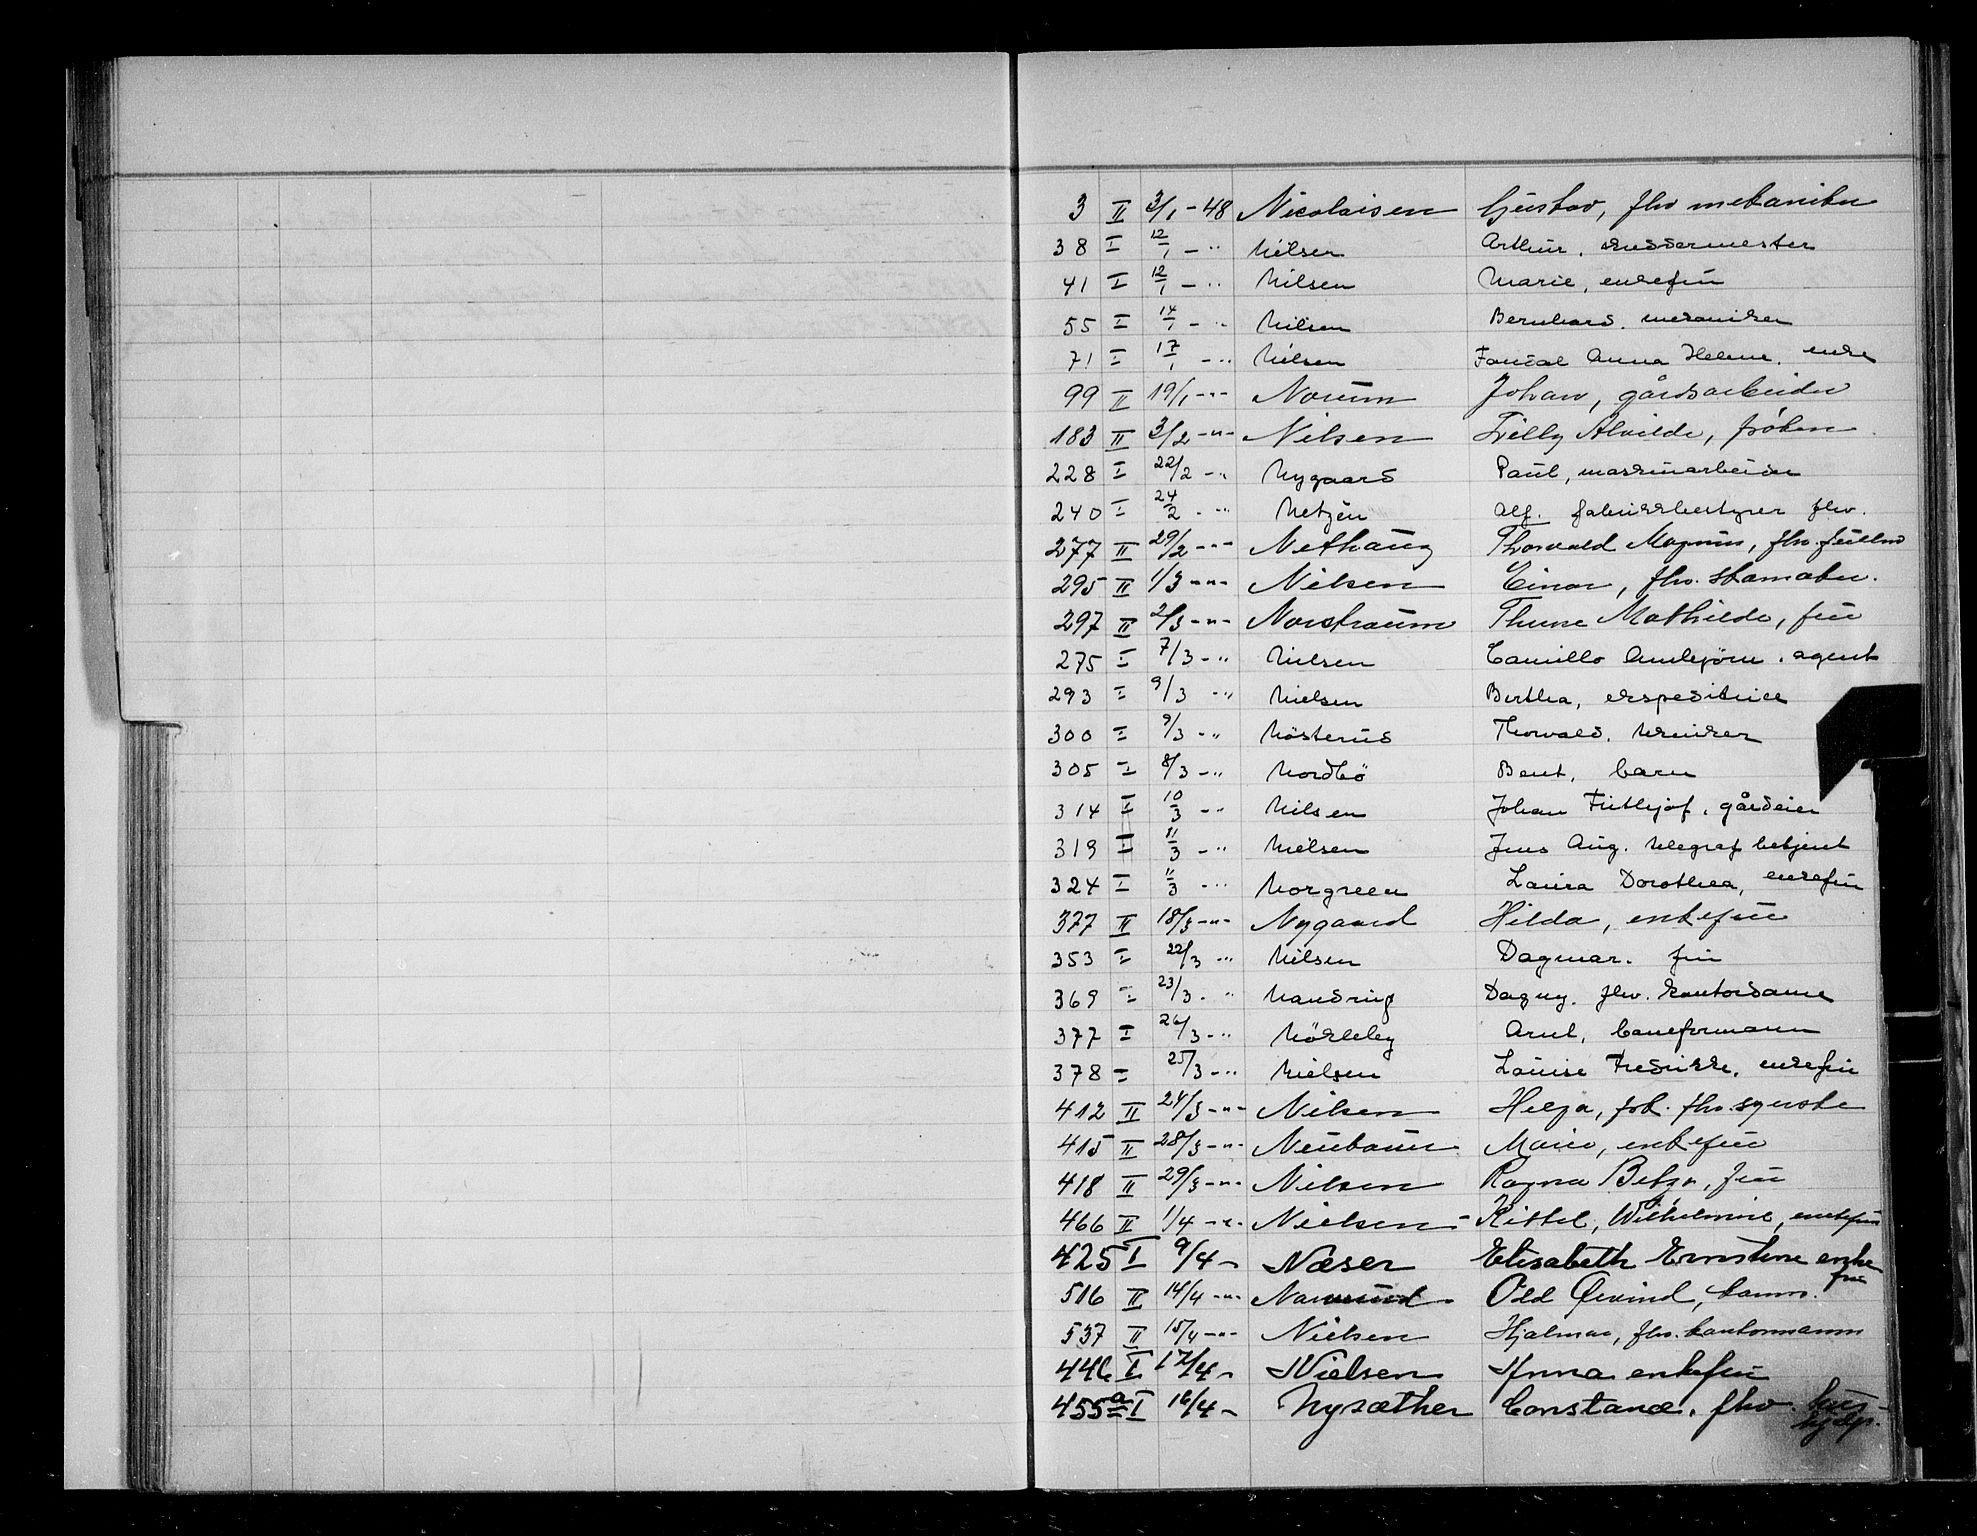 3 II 3/1 - 48 Nicolaisen Gustav, fhv mekaniker
38 I 12/1 - " Nilsen Arthur, skreddermester
41 I 12/1 - " Nilsen Marie, enkefru
55 I 14/1 - " Nilsen Bernhard. mekaniker
71 I 17/1 - " Nilsen Fandal Anna Helene. enke
99 II 19/1 - " - Norum Johan, gårdsarbeider
183 II 3/2 - " - Nilsen Lilly Alvilde, frøken
228 I 22/2 - " Nygaard Paul, maskinarbeider
240 I 24/2 - " Netzén Alf. fabrikkbestyrer fhv.
277 II 29/2 - " - Nethaug Thorvald Magnus, fhv.
295 II 1/3 - " - Nilsen Einar, fhv. skomaker.
297 II 2/3 - " - Norstraum Thune Mathilde, fru
275 I 7/3 - " Nielsen Camillo Annbjørn. agent
293 I 9/3 - " Nielsen Bertha, ekspeditrice
300 I 9/3 - " Nösterud Thorvald. tekniker
305 I 8/3 - " Nordbö Bent, barn
314 I 10/3 - " Nilsen Johan Frithjof, gårdeier
319 I 11/3 - " Nielsen Jens Aug. telegraf betjent
324 I 11/3 - " Norgreen Laura Dorothea, enkefru
377 II 18/3 - " - Nygaard Hilda, enkefru
353 I 22/3 - " Nilsen Dagmar. fru
369 I 23/3 - " Nandrup Dagny. fhv. kontordame
377 I 26/3 - " Nökleby Arnt, baneformann
378 I 25/3 - " Nielsen Louise Fredrikke, enkefru
412 II 24/3 - " - Nilsen Helga, frk. fhv. syerske
415 II 28/3 - " - Neubauer Marie, enkefru
418 II 29/3 - " - Nilsen Ragna Betzy, fru
466 II 1/4 - " - Nielsen - Kittel, Wilhelmine, enkefru
425 I 9/4 - Næser Elisabeth Ernstine enke
fru
516 II 14/4 - " - Odd Øivind,
537 II 15/4 - " - Nielsen Hjalmar, fhv. kontormann
446 I 17/4 - Nielsen Anna enkefru
455a I 16/4 - Nysæther Constance. fhv. hus-
hjelp.